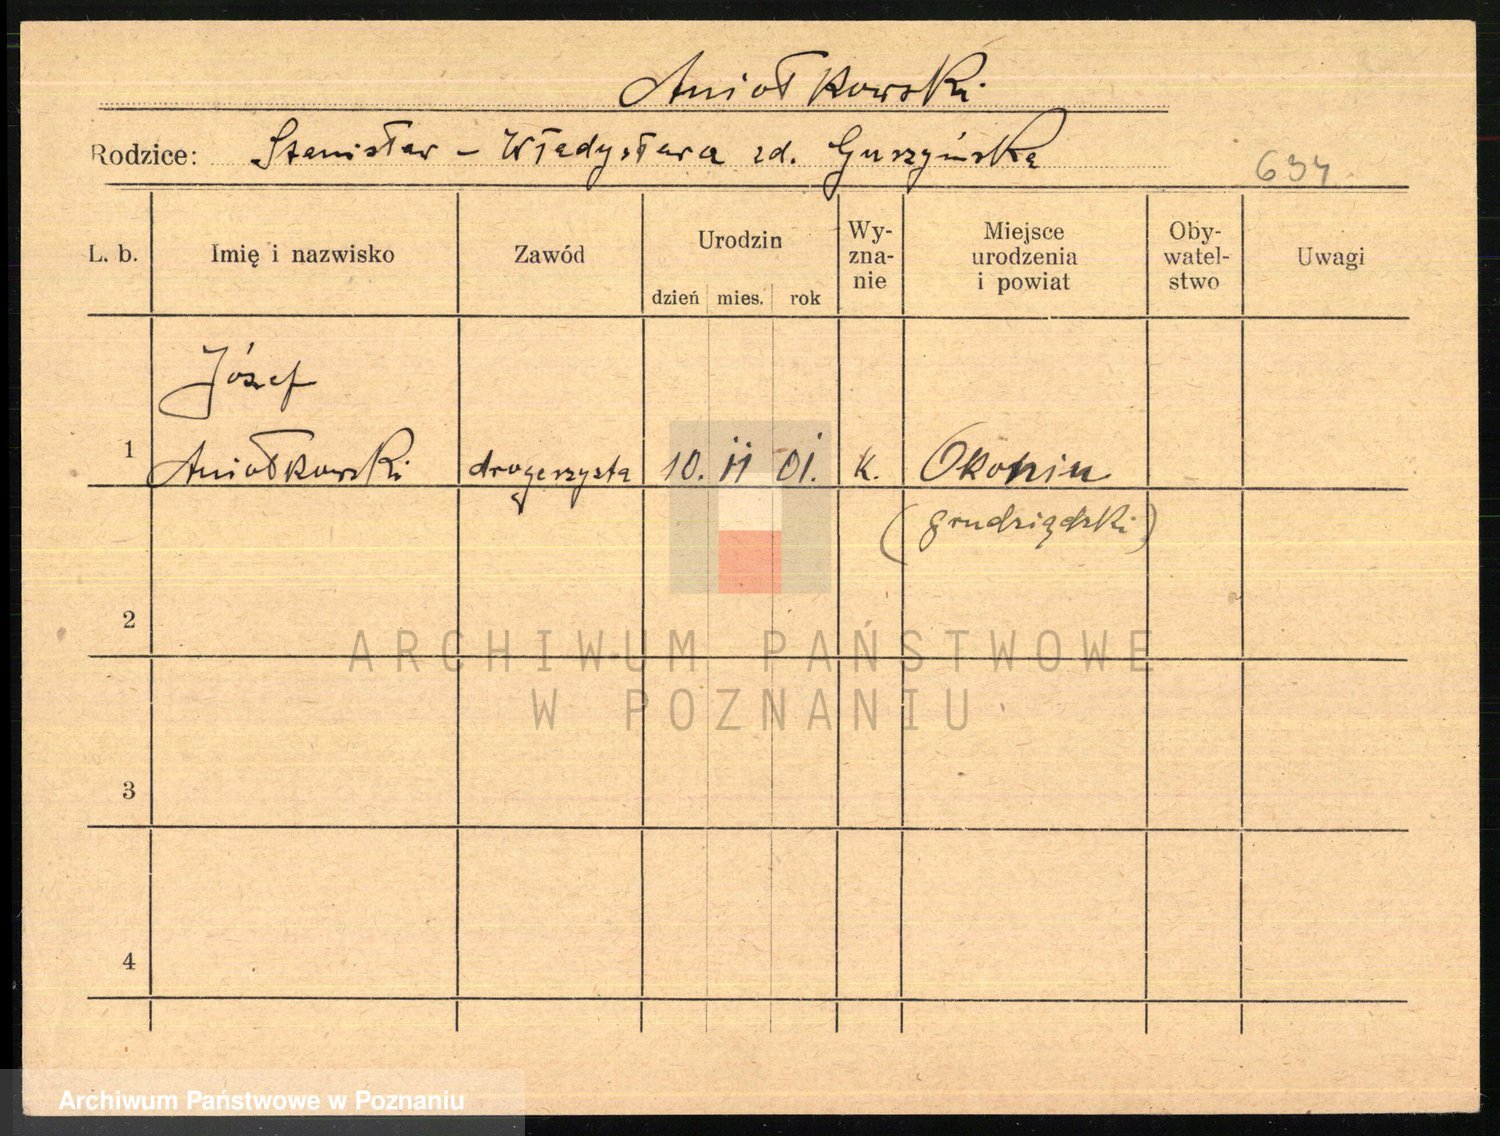 Aniołkowski
Rodzice: Stanisław - Władysława zd. Guszyńska
634
L. b. Imię i nazwisko Zawód Urodzin dzień mies. rok Wy-
zna-
nie Miejsce
urodzenia
i powiat Oby-
watel-
stwo Uwagi
Józef
1 Aniołkowski drogerzysta 10. II 01. k. Okonin
(grudziądzki)
2
3
4
ARCHIWUM PAŃSTWOWE
W POZNANIU
Archiwum Państwowe w Poznaniu